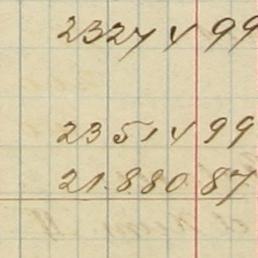 232714 99
235114 99
21.880.87